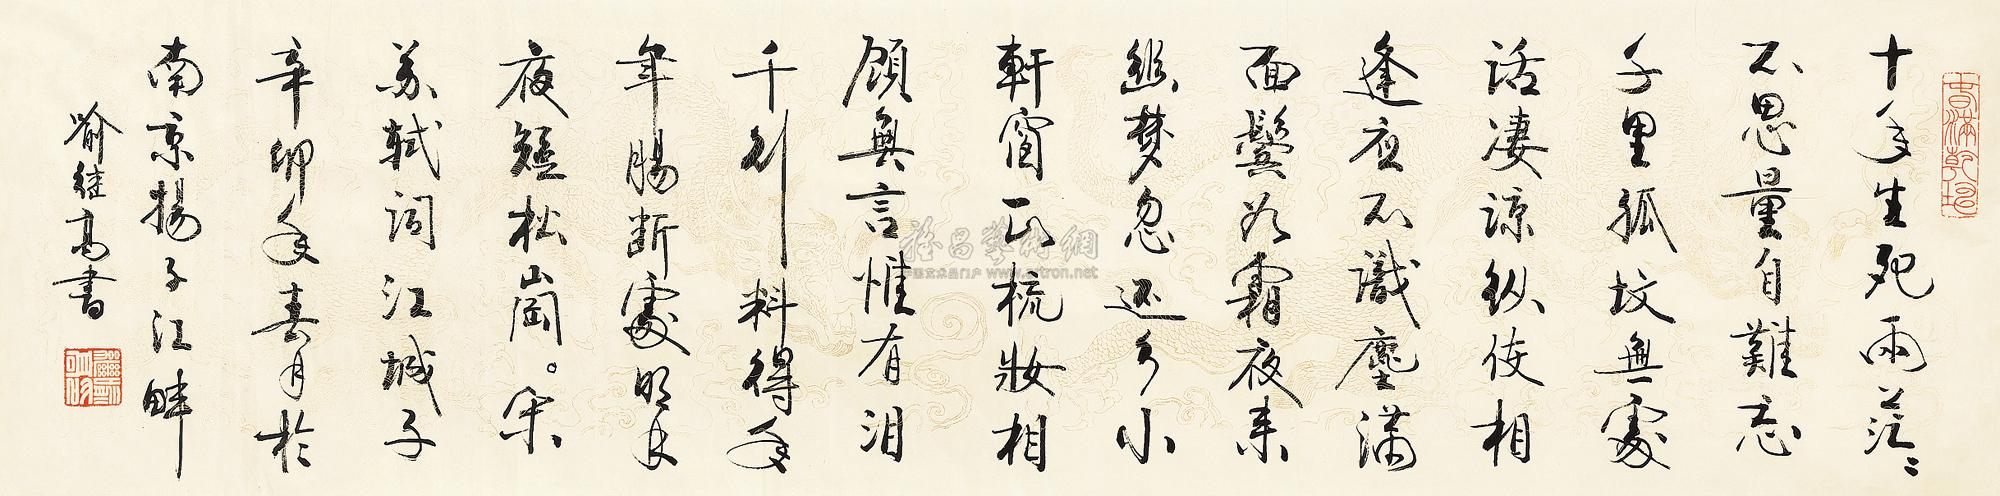 春滿乾坤
十年生死兩茫〻
不思量自難忘
千里孤墳無處
話凄涼縱使相
逢應不識塵滿
面鬢如霜夜来
幽梦忽还乡小
軒窗正梳妝相
顧無言惟有泪
千行料得年
年腸断處明月
夜短松崗。宋
苏軾词江城子
辛卯年春月於
南京揚子江畔
喻继高書
雅昌藝術網
中国艺术品门户 www.artron.net